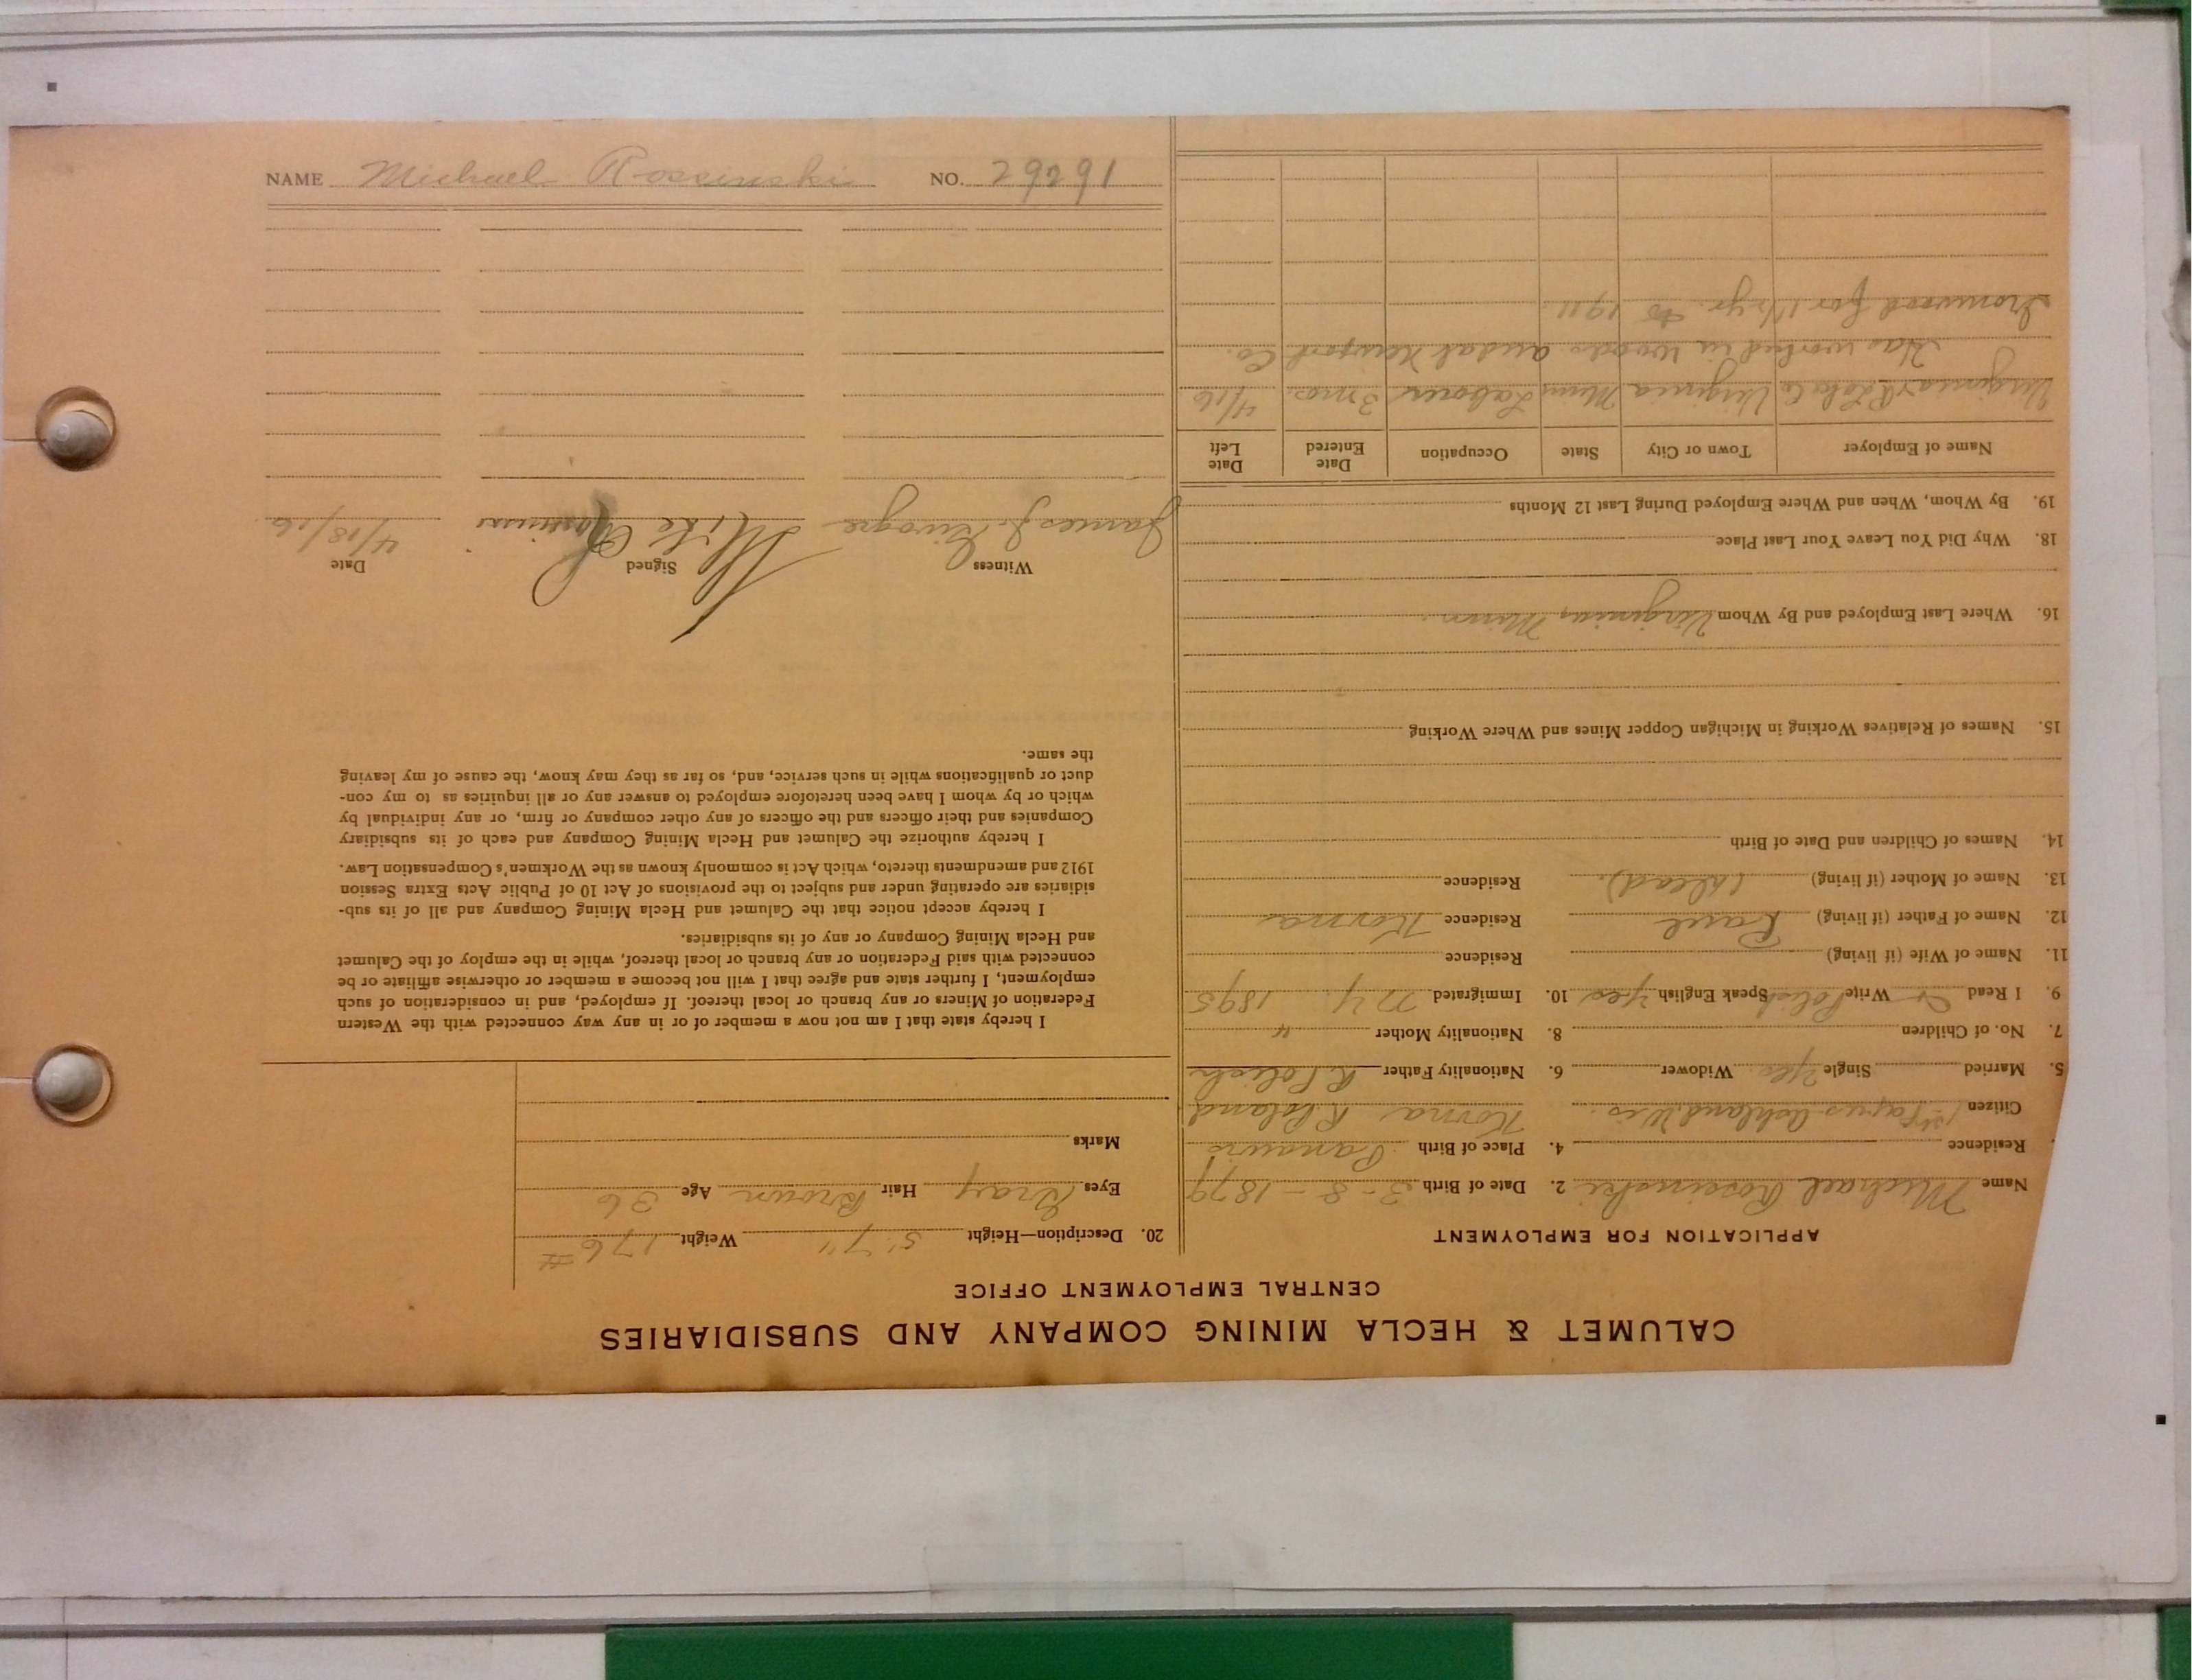 NAME Michael Rossinski NO. 29291
CALUMET & HECLA MINING COMPANY AND SUBSIDIARIES
CENTRAL EMPLOYMENT OFFICE
APPLICATION FOR EMPLOYMENT
Name Michael Roscinski 2. Date of Birth 3-8-1879
Residence 4. Place of Birth
Citizen 1st Papers Ashland Wis. R. Poland
5. Married Single Yes Widower 6. Nationality Father R. Polish
7. No. of Children 8. Nationality Mother "
9. I Read & Write Polish Speak English yes 10. Immigrated N.Y. 1895
11. Name of Wife (if living) Residence
12. Name of Father (if living) Residence
13. Name of Mother (if living) (dead). Residence
14. Names of Children and Date of Birth
15. Names of Relatives Working in Michigan Copper Mines and Where Working
16. Where Last Employed and By Whom Virginia, Minn.
18. Why Did You Leave Your Last Place
19. By Whom, When and Where Employed During Last 12 Months
Name of Employer Town or City State Occupation Date Entered Date Left
Virginia & Co Virginia Minn Laborer 3 mos. 4/16
Has worked in woods and at Newport Co.
Ironwood for 1 1/2 yr. to 1911.
20. Description—Height 5' 7" Weight 176 #
Eyes Gray Hair Brown Age 36
Marks
I hereby state that I am not now a member of or in any way connected with the Western
Federation of Miners or any branch or local thereof. If employed, and in consideration of such
employment, I further state and agree that I will not become a member or otherwise affiliate or be
connected with said Federation or any branch or local thereof, while in the employ of the Calumet
and Hecla Mining Company or any of its subsidiaries.
I hereby accept notice that the Calumet and Hecla Mining Company and all of its sub-
sidiaries are operating under and subject to the provisions of Act 10 of Public Acts Extra Session
1912 and amendments thereto, which Act is commonly known as the Workmen's Compensation Law.
I hereby authorize the Calumet and Hecla Mining Company and each of its subsidiary
Companies and their officers and the officers of any other company or firm, or any individual by
which or by whom I have been heretofore employed to answer any or all inquiries as to my con-
duct or qualifications while in such service, and, so far as they may know, the cause of my leaving
the same.
Witness Signed Date
James J. Mike 4/18/16